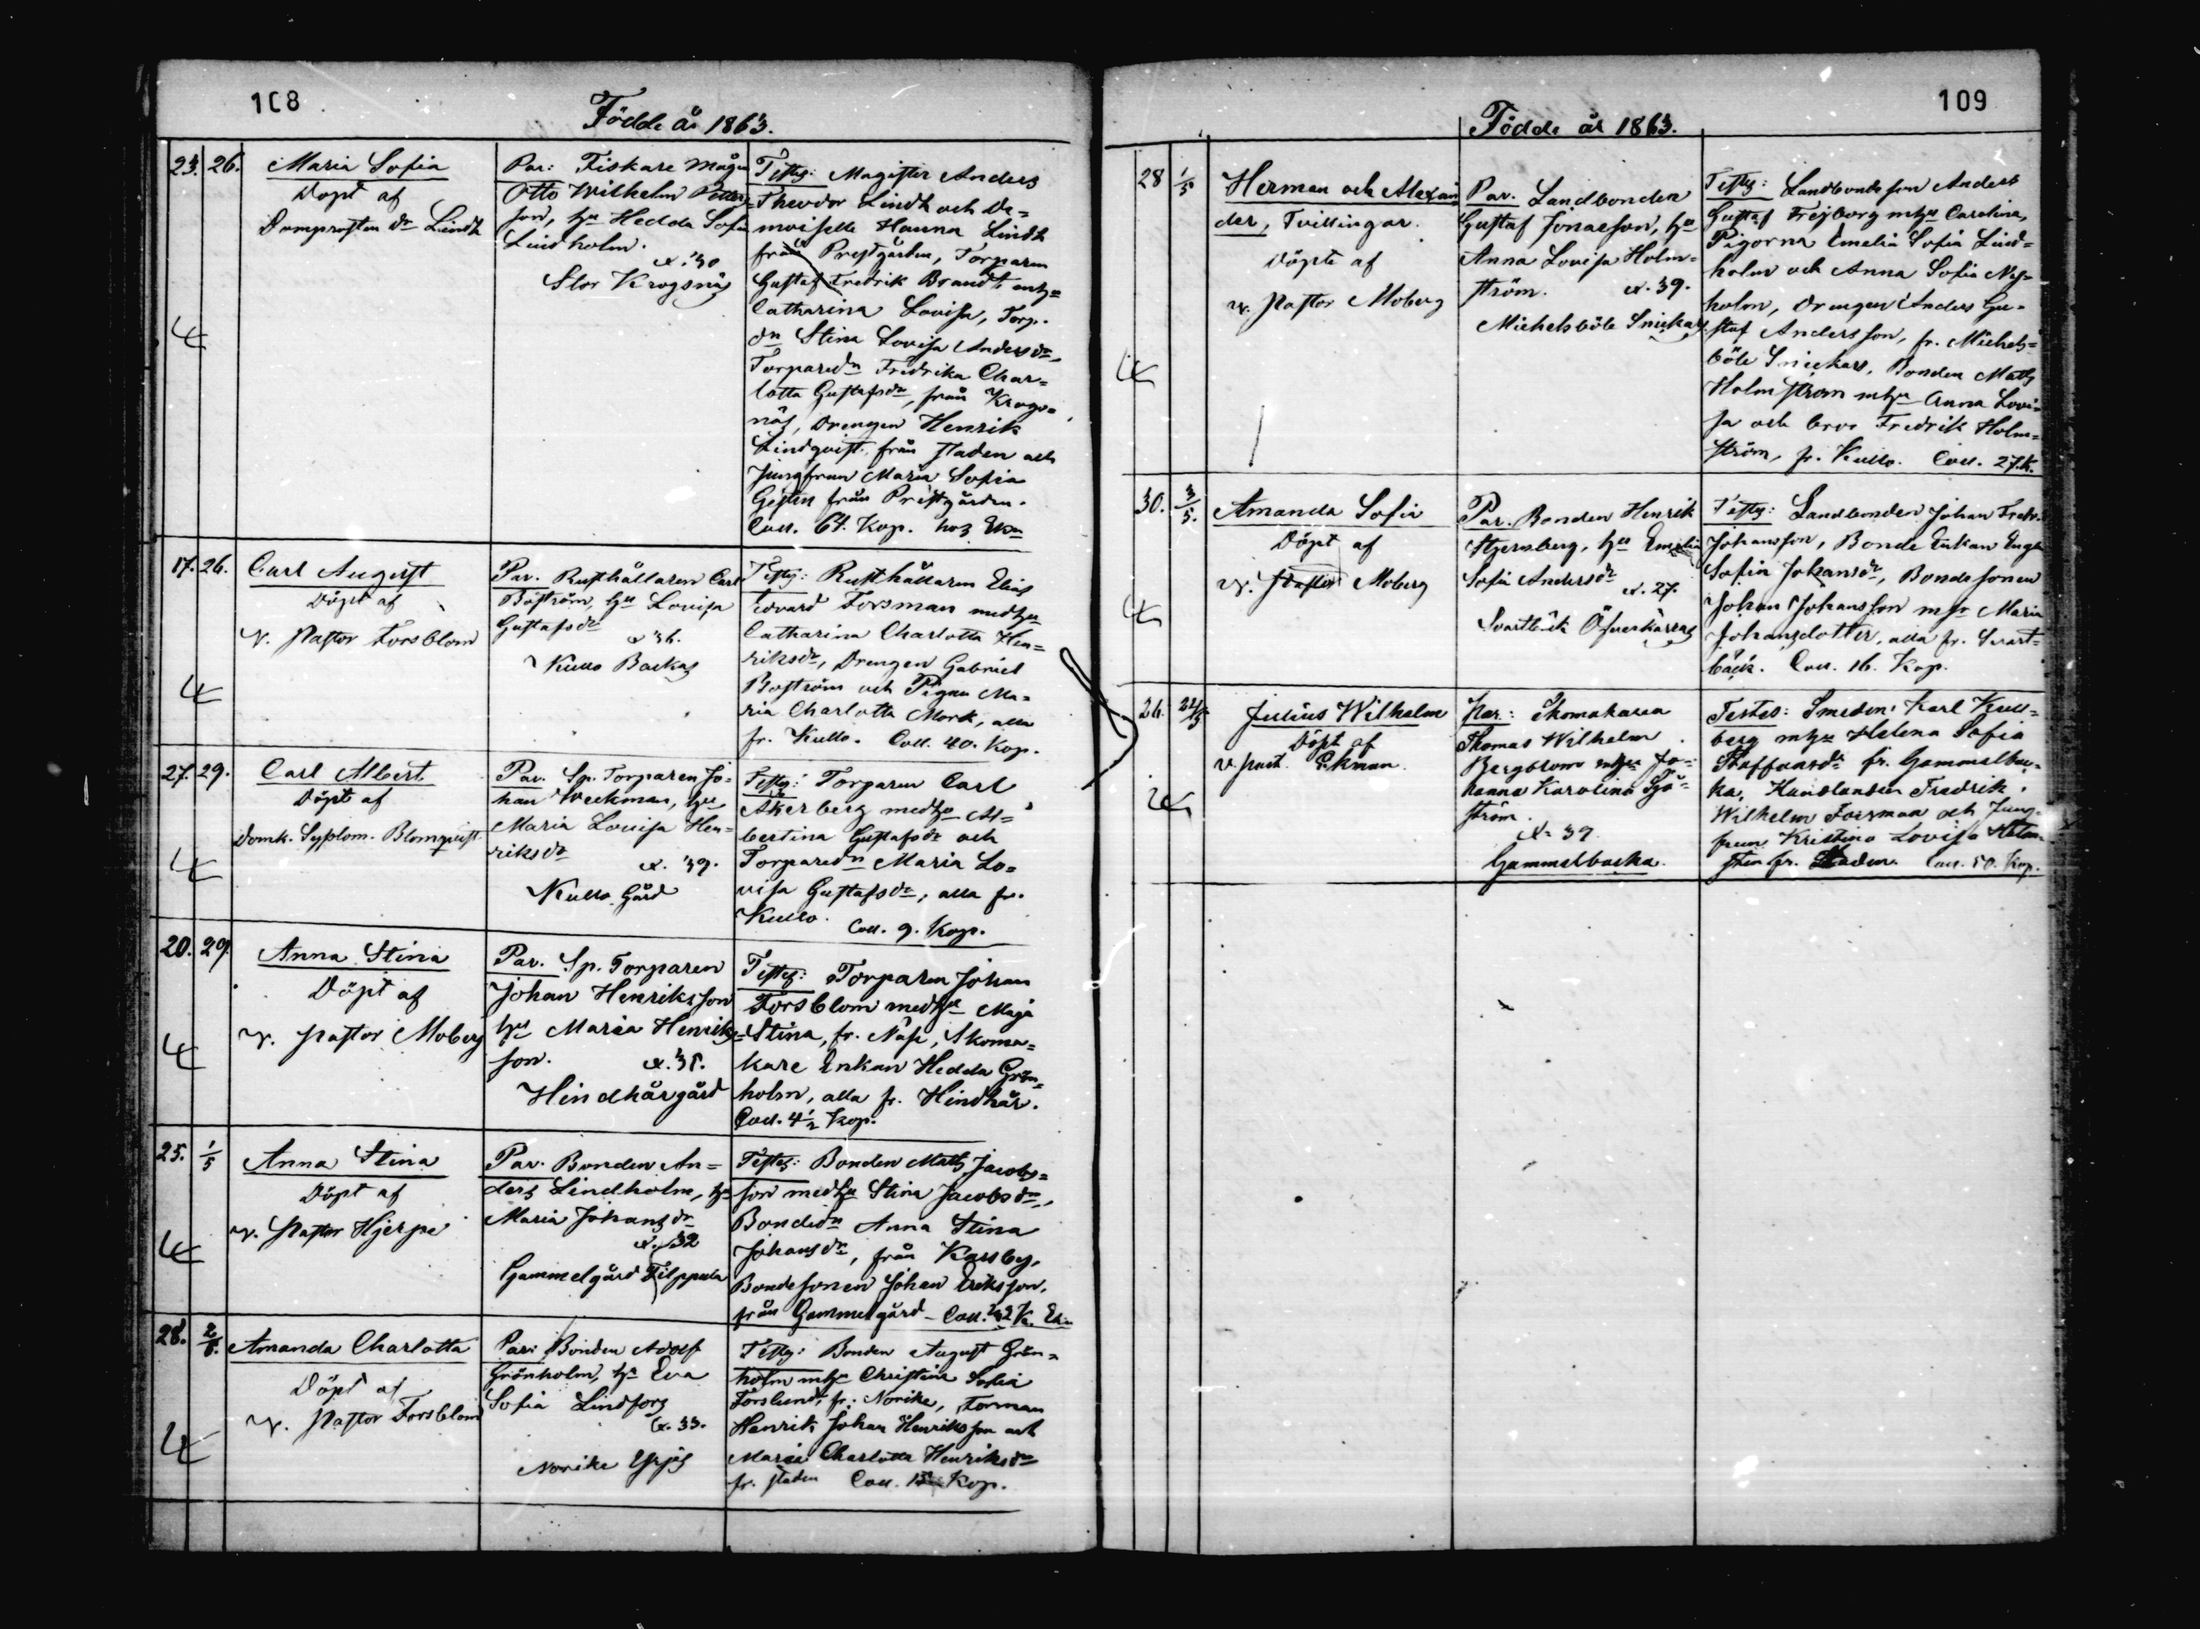 108
Födde år 1863.
23. 26.
Maria Sofia
Döpt af
Domprosten Dr Lindh
Par: Fiskare mågen
Otto Wilhelm Petter-
son, hu Hedda Sofia
Lindholm.
æ. 30
Stor Krogsnäs
Testes: Magister Anders
Theodor Lindh och De-
moiselle Hanna Lindh
från Prestgården, Torparen
Gustaf Fredrik Brandt mhu
Catharina Lovisa, Torp.
dn Stina Lovisa Andersdr,
Torparedn Fredrika Char-
lotta Gustafsdr, från Krogs-
näs, Drengen Henrik
Lindqvist från staden och
Jungfrun Maria Sofia
från Prestgården.
Coll. 64. Kop. hos
17. 26.
Carl August
Döpt af
v. Pastor Forsblom
Par. Rusthållaren Carl
Boström, hu Lovisa
Gustafsdr
æ 36.
Kullo Backas
Testes: Rusthållaren Elias
Edvard Forsman medhu
Catharina Charlotta Hen-
riksdr, Drengen Gabriel
Boström och Pigan Ma-
ria Charlotta Mork, alla
fr. Kullo. Coll. 40. Kop.
27. 29.
Carl Albert.
Döpt af
Domk. Syslom. Blomqvist
Par. Sp. Torparen Jo-
han Weckman, hu
Maria Lovisa Hen-
riksdr
æ. 39.
Kullo Gård
Testes: Torparen Carl
Åkerberg medhu Al-
bertina Gustafsdr och
Torparedn Maria Lo-
visa Gustafsdr, alla fr.
Kullo. Coll. 9. Kop.
20. 29.
Anna Stina
Döpt af
v. Pastor Moberg
Par. Sp. Torparen
Johan Henriksson
hu Maria Henriks-
son. æ. 35.
Hindhårgård
Testes: Torparen Johan
Forsblom medhu Maja
Stina, fr. Näse, Skoma-
kare Enkan Hedda Grön-
holm, alla fr. Hindhår.
Coll. 4½ Kop.
25. 1/5
Anna Stina
Döpt af
v. Pastor Hjerpe
Par. Bonden An-
ders Lindholm, hu
Maria Johansdr
æ. 32
Gammelgård Filppula
Testes: Bonden Mats Jacobs-
son medhu Stina Jacobsdr,
Bondedn Anna Stina
Johansdr, från Karsby,
Bondesonen Johan Eriksson,
från Gammelgård. Coll.
28. 2/5.
Amanda Charlotta
Döpt af
v. Pastor Forsblom
Par: Bonden Adolf
Grönholm, hu Eva
Sofia Lindfors
æ. 33.
Norike
Testes: Bonden August Grön-
holm mhu Christina Sofia
Forslund, fr. Norike, Forman
Henrik Johan Henriksson och
Maria Charlotta Henriksdr
fr. staden Coll. Kop.
109
Födde år 1863.
28 1/5
Herman och Alexan-
der, Tvillingar.
Döpte af
v. Pastor Moberg
Par. Landbonden
Gustaf Jonasson, hu
Anna Lovisa Holm-
ström. æ. 39.
Michelsböle Snickars
Testes: Landbondeson Anders
Gustaf Freyborg mhu Carolina,
Pigorna Emelia Sofia Lind-
holm och Anna Sofia Nys-
holm, Drengen Anders Gu-
staf Andersson, fr. Michels-
böle Snickars, Bonden Mats
Holmström mhu Anna Lovi-
sa och bror Fredrik Holm-
ström, fr. Kullo. Coll. 27. K.
30. 3/5.
Amanda Sofia
Döpt af
v. Pastor Moberg
Par. Bonden Henrik
Stjernberg, hu Emelia
Sofia Andersdr
æ. 27.
Svartbäck Öfverkärras
Testes: Landbonden Johan Fredr.
Johansson, Bonde Enkan
Sofia Johansdr, Bondesonen
Johan Johansson mhu Maria
Johansdotter, alla fr. Svart-
bäck. Coll. 16. Kop.
26.
Julius Wilhelm
Döpt af
v. past. Ekman
Par: Skomakaren
Thomas Wilhelm
Bergblom mhu Jo-
hanna Karolina Sjö-
ström.
æ. 39
Gammelbacka
Testes: Smeden Karl Kull-
berg mhu Helena Sofia
Staffansdr fr. Gammelbac-
ka, Handlanden Fredrik
Wilhelm Forsman och Jung-
frun Kristina Lovisa
fr. Staden. Coll. 50. Kop.